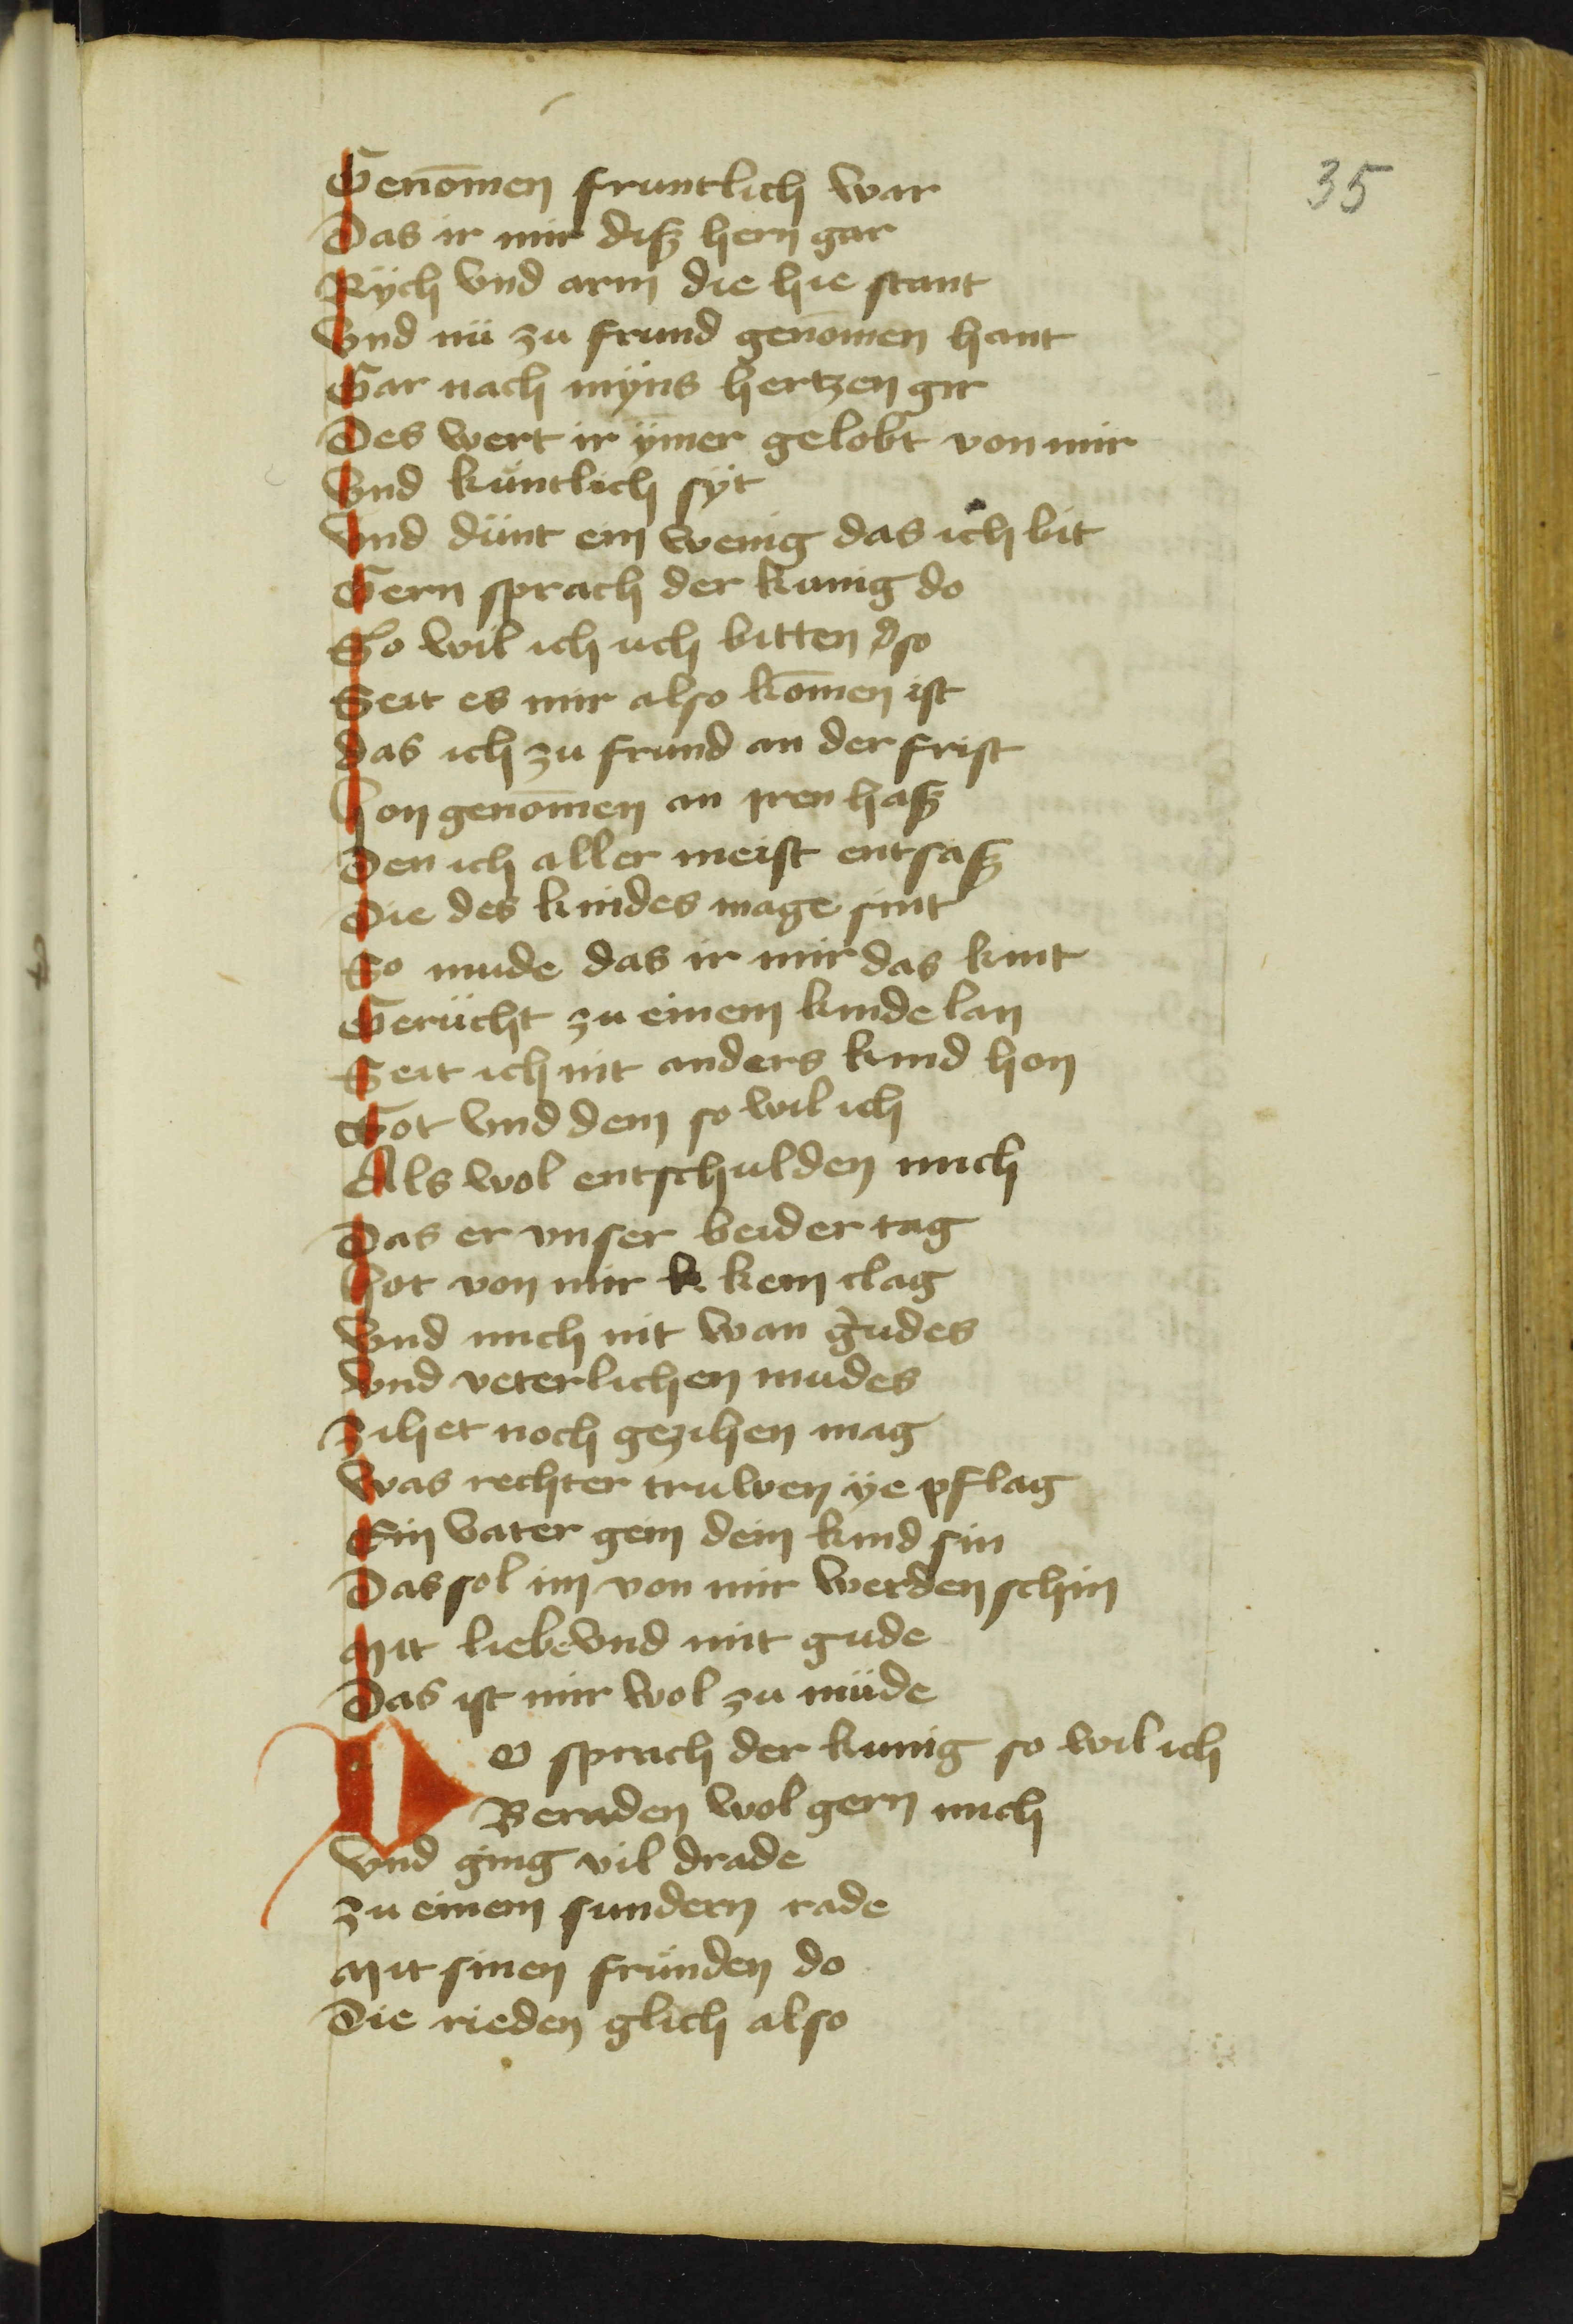 35
Genōmen fruntlich war
Das ir mir diß hern gar
Rÿch vnd arm die hie stant
Vnd nü zu frund genōmen hant
Gar nach mÿns hertzen gir
Des wert ir ÿmer gelobt von mir
Vnd küntlich sÿt
Vnd dünt ein wenig das ich bit
Gern sprach der kunig do
So wil ich uch bitten so
Seit es mir also kōmen ist
das ich zu frund an der frist
hon genōmen an iren haß
Den ich aller meist entsaß
Die des kindes mage sint
So mude das ir mir das kint
Gerücht zu einem kinde lan
Seit ich nit anders kind hon
Got vnd dem so wil ich
Als wol entschulden mich
Das er vnser beider tag
hot von mir k kein clag
Vnd mich nit wan gudes
Vnd veterlichen mudes
zihet noch gezihen mag
Was rechter truwen ÿe pflag
Ein vater gein dem kind sin
Das sol im von mir werden schin
Mit liebe vnd mit gude
Das ist mir wol zu müde
Do sprach der kunig so wil ich
Beraden wol gern mich
Vnd ging vil drade
zu einem sundern rade
Mit sinen fründen do
Die rieden glich also